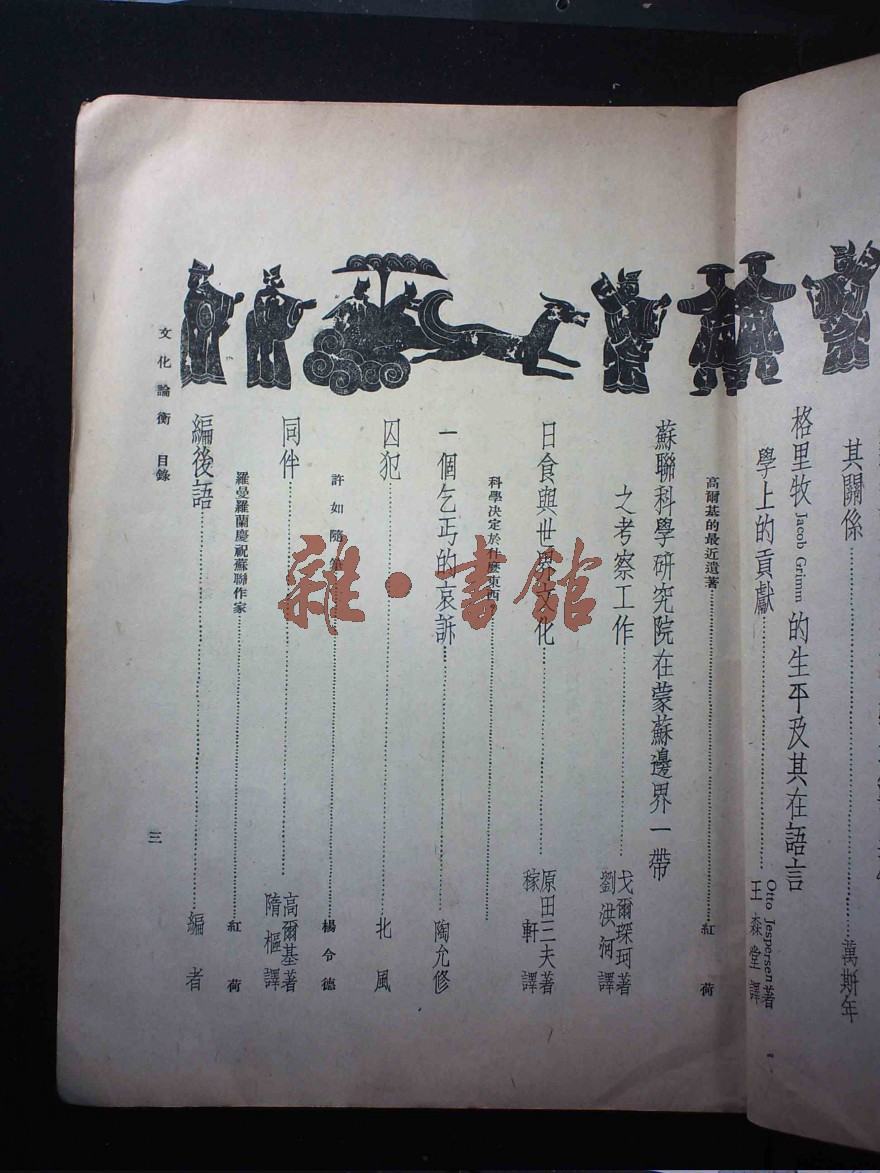 其關係
萬斯年
格里牧 Jacob Grimm 的生平及其在語言
學上的貢獻
Otto Jespersen著
王森堂譯
高爾基的最近遺著
紅荷
蘇聯科學研究院在蒙蘇邊界一帶
之考察工作
戈爾琛珂著
劉洪河譯
日食與世界文化
原田三夫著
稼軒譯
科學決定於什麼東西
一個乞丐的哀訴
陶允修
囚犯
北風
許如隨筆
楊令德
同伴
高爾基著
隋樞譯
羅曼羅蘭慶祝蘇聯作家
紅荷
編後語
編者
文化論衡 目錄
三
雜·書館